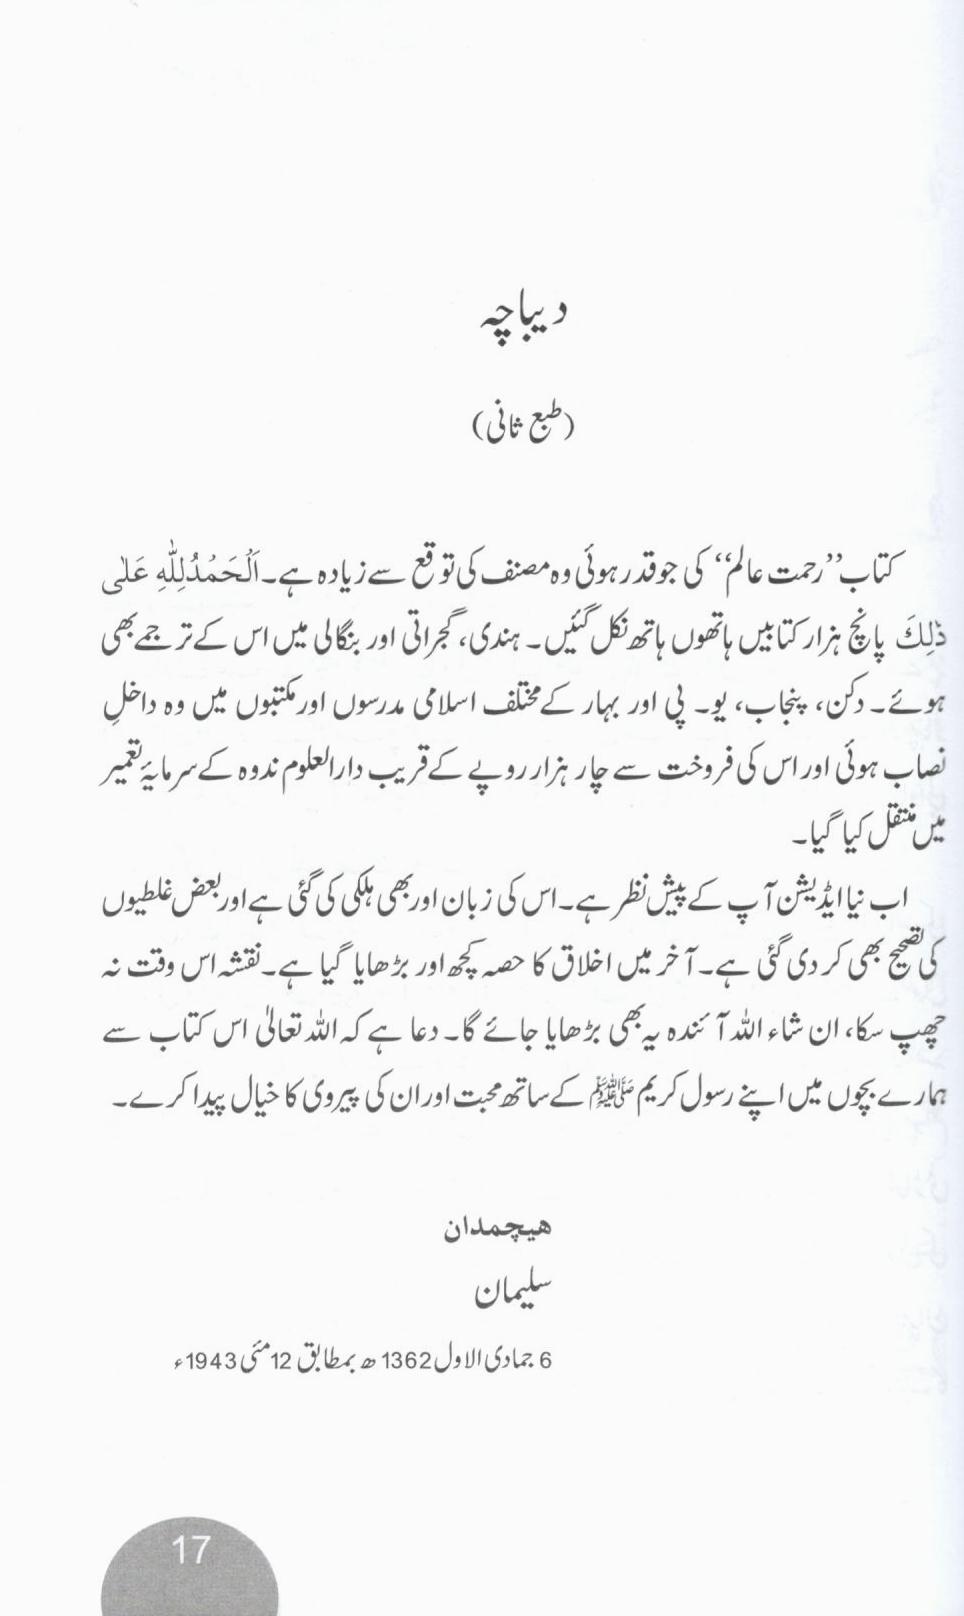 دیباچہ
(طبع ثانی)
کتاب ”رحمت عالم“ کی جو قدر ہوئی وہ مصنف کی توقع سے زیادہ ہے۔ اَلْحَمْدُلِلّٰهِ عَلٰی
ذٰلِكَ پانچ ہزار کتابیں ہاتھوں ہاتھ نکل گئیں۔ ہندی، گجراتی اور بنگالی میں اس کے ترجمے بھی
ہوئے۔ دکن، پنجاب، یو۔ پی اور بہار کے مختلف اسلامی مدرسوں اور مکتبوں میں وہ داخلِ
نصاب ہوئی اور اس کی فروخت سے چار ہزار روپے کے قریب دارالعلوم ندوہ کے سرمایۂ تعمیر
میں منتقل کیا گیا۔
اب نیا ایڈیشن آپ کے پیش نظر ہے۔ اس کی زبان اور بھی ہلکی کی گئی ہے اور بعض غلطیوں
کی تصحیح بھی کر دی گئی ہے۔ آخر میں اخلاق کا حصہ کچھ اور بڑھایا گیا ہے۔ نقشہ اس وقت نہ
چھپ سکا، ان شاء اللہ آئندہ یہ بھی بڑھایا جائے گا۔ دعا ہے کہ اللہ تعالیٰ اس کتاب سے
ہمارے بچوں میں اپنے رسول کریم ﷺ کے ساتھ محبت اور ان کی پیروی کا خیال پیدا کرے۔
ھیچمدان
سلیمان
6 جمادی الاول 1362ھ بمطابق 12 مئی 1943ء
17